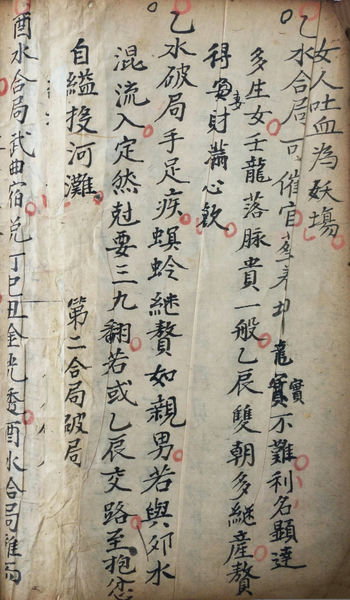 女人吐血為妖場
乙水合局可催官 龍寶實不難利名顯達
多生女壬龍落脉貴一般乙辰雙朝多継產贅
得妻財滿心歓
乙水破局手足疾螟蛉継贅如親男若與卯水
混流入定然尅妻三九翻若或乙辰交路至抱恙
自縊投河灘 第二合局破局
酉水合局武曲宿兌丁巳丑金光透酉水合局雜而